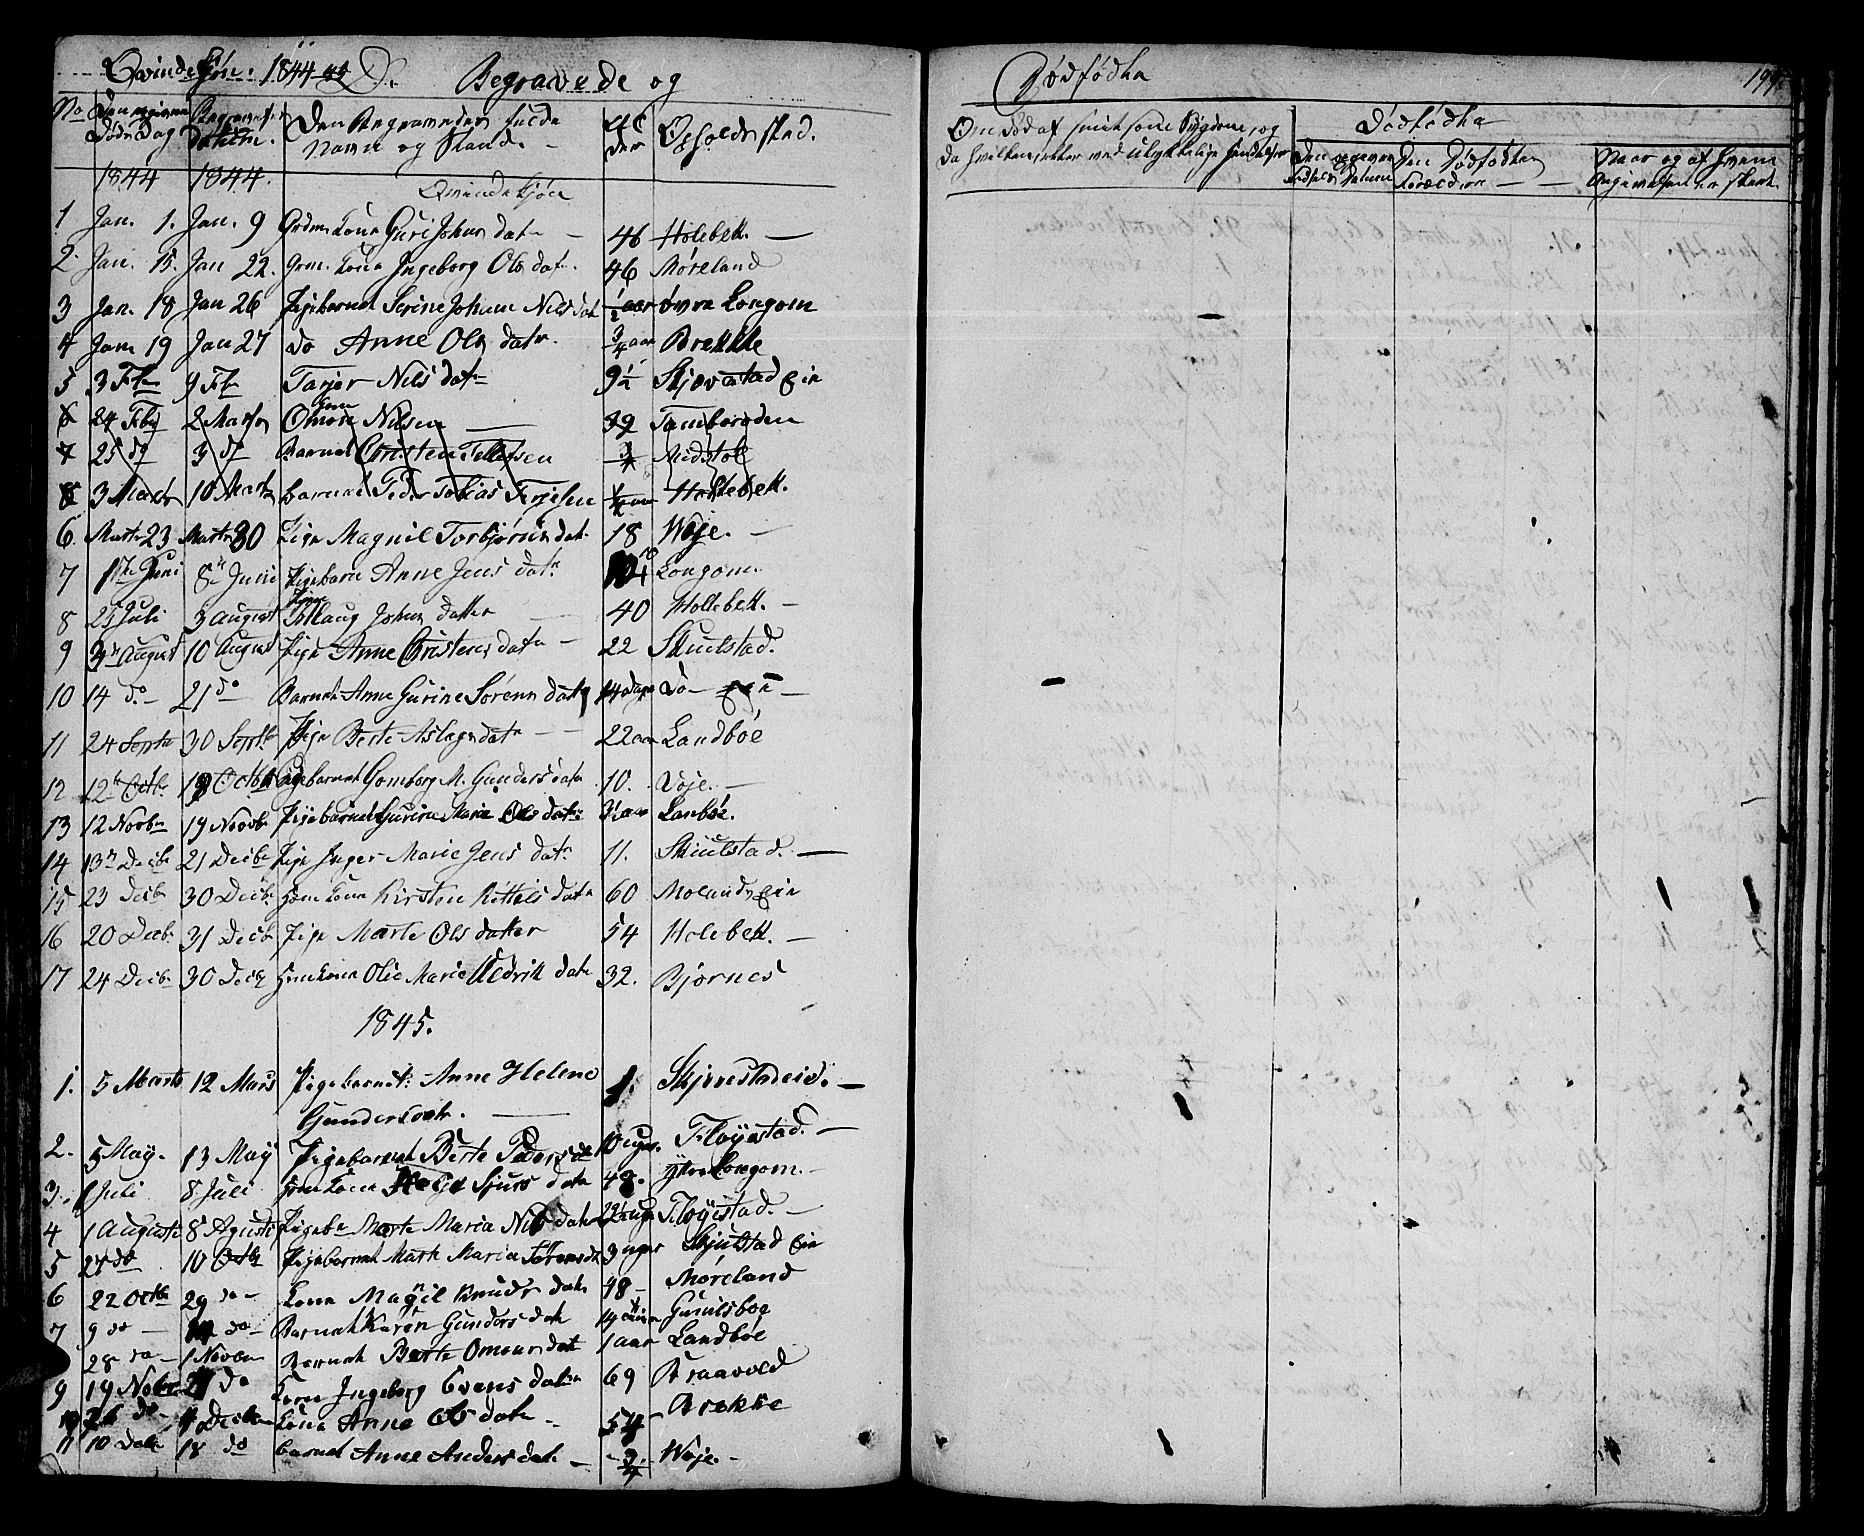 Qvindekjøn. 1844 D. Begravede og
No Den angivne Døds Dag Begravelses Datum. Den Begravedes fulde Navn og Stand. Alder Opholdssted.
1844 1844. Qvindekjøn
1 Jan. 1. Jan. 9 Guri Johns datr 46 Holebek.
2. Jan. 15. Jan 22. Ingeborg Ols datr. 46 Møreland
3 Jan. 18 Jan 26 Pigebarnet Serine Johane Nils dat ½ aar øvre Longom
4 Jan 19 Jan 27 do Anne Ols datr. 3/4 aar Brekke
5 3 Fbr 9 Fbr Tarjer Nils datr 9½ Skjævstad Eie
6 24 Fbr 2 Marts Omon Nilsen 39 Tamberoden
7 25 do 3 do Barnet Christen Tellefsen 3/4 Midstøl
8 3 Marts 10 Marts barnet Peder Tobias Terjesen Holtebek.
6. Marts 23 Marts 30 Pige Magnil Torbjørns dat. 18 Wøje.
7 1ste Juni 8de Juni Pigebarn Anne Jens datr Longom.
8 25 Juli 3 August Kone Tollaug Johns datter 40 Holtebek.
9 3de August 10 August Pige Anne Christens datr 22 Skuulstad.
10 14 do 21 do Barnet Anne Gurine Sørens datr 14 dage Do Eie
11 24 Septr 30 Septbr Pige Berte Aslags datr 22 aar Landbøe
12 12te Octbr 19 Octbr Pigebarnet Gomborg M. Gunders datr 10. Vøje.
13 12 Novbr 19 Novbr Pigebarnet Gurine Marie Ols datr 3½ aar Lanbøe.
14 13de Decbr 21 Decbr Pige Inger Marie Jens datr 11. Skuulstad.
15 23 Decbr 30 Decbr Kone Kirsten Kittels datr 60 Molands Eie
16 20 Decbr 31 Decbr Pige Marte Ols datter 54 Holebek.
17 24 Decbr 30 Decbr Olie Marie Hedrik datr 32. Bjørnes
1845.
1. 5 Marts 12 Mars Pigebarnet Anne Helene 1. Skjevestadeid.
Gundersdatr.
2. 5 May. 13 May Pigebarnet Berte Peders dr 10 uger. Fløystad.
3. 1 Juli 8 Juli Kone Sjurs datr 48. ytre Longom.
4 1 Auguste 8 Aguste Pigebn Marte Maria Nils datr uger Fløyestad.
5 27 do 10 Octbr Pigebarnet Marte Maria Sørens dt 3 uger Skjulstad Eie
6 22 Octbr 29 do Kone Magnil Knuds datr 48 Møreland
7 9 do do Barnet Karen Gunders datr 14 dage Guulsbog
28 do 1 Novbr Barnet Berte Omons dat 1 aar Landbøe
9 19 Nobr 27 do Kone Ingeborg Evens datr 69 Braavold
10 26 do 4 Decbr Kone Anne Ols datr 54 Brekke
11 10 Decbr 18 do barnet Anne Anders datr 3/4 Wøje.
Dødfødte 199.
Om Død af smitsom Sygdom, og Dødfødte
da hvilken, eller ved ulykkelige Hændelser Den opgivne Fødsels Datum Den Dødfødtes Forældre Naar og af hvem Angivelsen er skeet